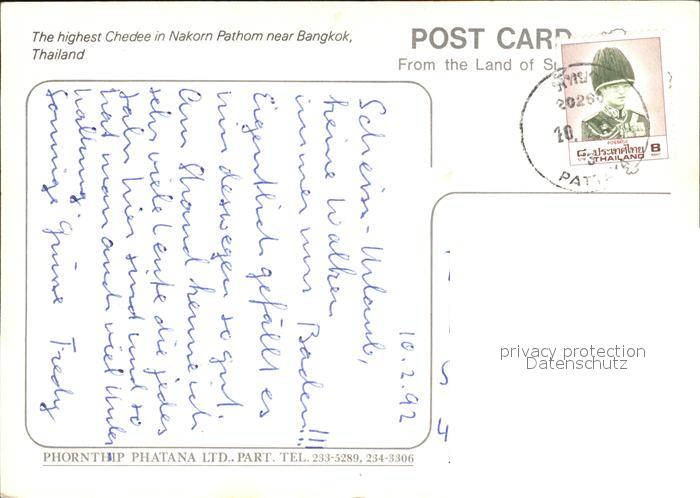 The highest Chedee in Nakorn Pathom near Bangkok,
Thailand
POST CARD
From the Land of
10.2.92
Scheiss-Urlaub,
keine Wolken
immer nur Baden!!!
Eigentlich gefällt es
mir deswegen so gut.
Am Strand kenne ich
sehr viele Leute die jedes
Jahr hier sind und so
hat man auch viel Unter-
haltung.
Sonnige Grüsse Fredy
20260
10.
PATTAYA
๘ ประเทศไทย 8
THAILAND
privacy protection
Datenschutz
PHORNTHIP PHATANA LTD., PART. TEL. 233-5289, 234-3306